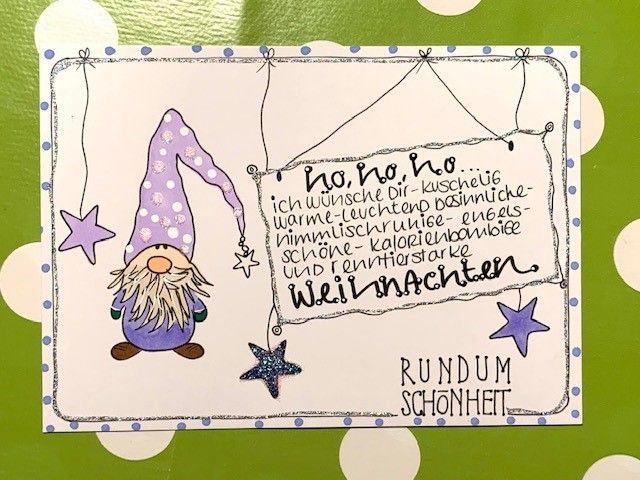 ho, ho, ho...
ich wünsche Dir - kuschelig
warme - leuchtend besinnliche -
himmlischruhige - engels-
schöne - kalorienbombige
und renntierstarke
Weihnachten
RUNDUM
SCHÖNHEIT